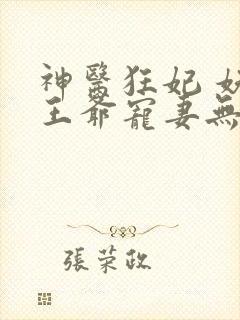 神醫狂妃
王爺寵妻無
張荣政